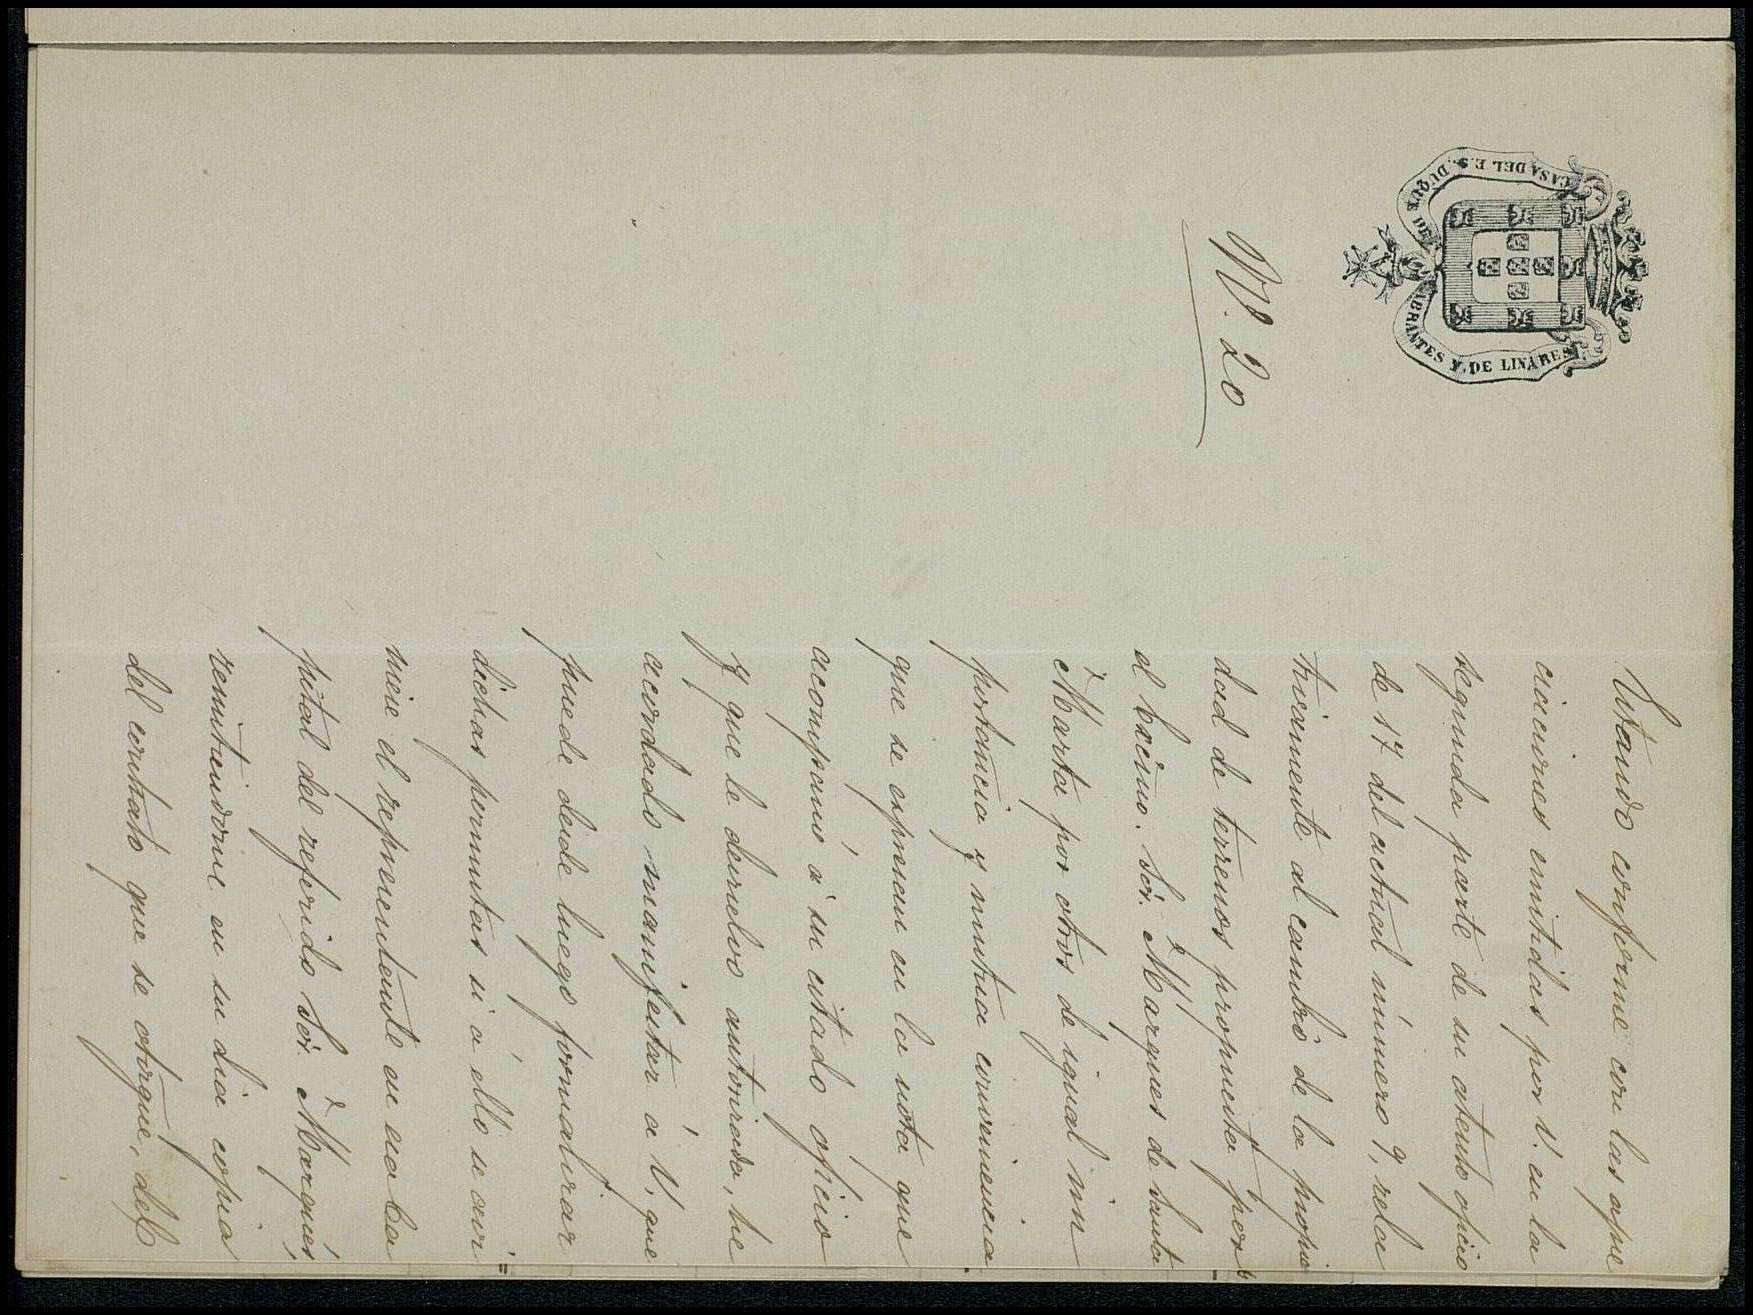 CASA DEL E. S. DUQUE DE ABRANTES Y DE LINARES
Nº. 20
Estando conforme con las apre
ciaciones emitidas por V. en la
segunda parte de su atento oficio
de 17 del actual número 9, rela
tivamente al cambio de la propie
dad de terrenos propuesta por
el Excmo. Sor. Marques de Santa
Marta por otros de igual im
portancia y mutua conveniencia
que se expresan en la nota que
acompañó á su citado oficio
y que le devuelvo autorizada, he
acordado manifestar á V. que
puede desde luego formalizar
dichas permutas si á ello se avi
niere el representante en esa Ca
pital del referido Sor. Marqués,
remitiendome en su dia copia
del contrato que se otorgue, del